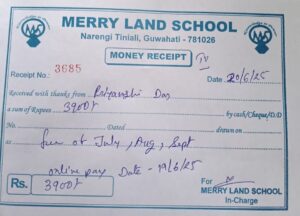 MERRY LAND SCHOOL
Narengi Tiniali, Guwahati - 781026
MONEY RECEIPT
IV
Receipt No.: 3685 Date 20/6/25
Received with thanks from Priyanshi Das
a sum of Rupees 3900/- by cash/Cheque/D.D
No. Dated drawn on
as fees of July, Aug, Sept
online pay Date - 19/6/25
Rs. 3900/-
For
MERRY LAND SCHOOL
In-Charge